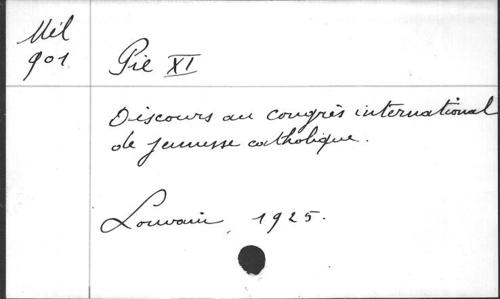 Mél
901
Pie XI
Discours au congrès international
de jeunesse catholique.
Louvain, 1925.